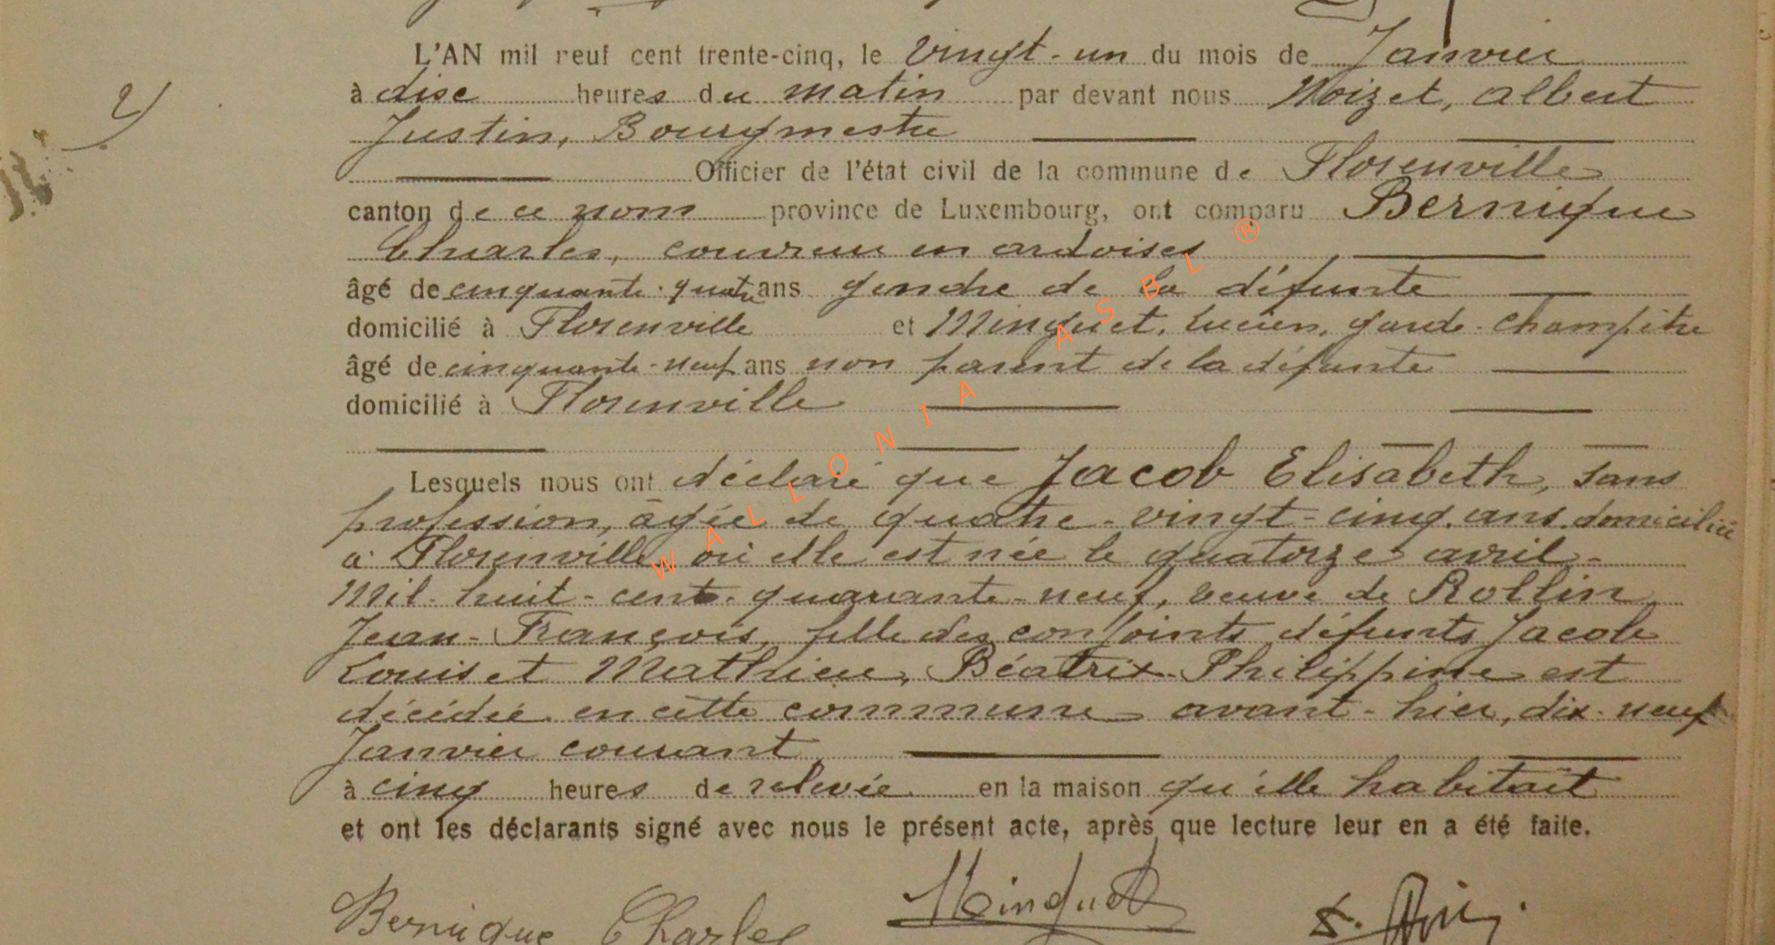 L'AN mil neuf cent trente-cinq, le vingt-un du mois de Janvier
2)
à dise heures du matin par devant nous Noizet, Albert
Justin, Bourgmestre
Officier de l'état civil de la commune de Florenville
canton de ce nom province de Luxembourg, ont comparu Bernique
Charles, couvreur en ardoises
âgé de cinquante-quatre ans gendre de la défunte
domicilié à Florenville et Minguet, Lucien, garde-champêtre
âgé de cinquante-neuf ans non parent de la défunte
domicilié à Florenville
Lesquels nous ont déclaré que Jacob Elisabeth, sans
profession, âgée de quatre-vingt-cinq ans domiciliée
à Florenville où elle est née le quatorze avril
Mil-huit-cent-quarante-neuf, veuve de Rollin
Jean-François, fille des conjoints défunts Jacob
Louis et Mathieu, Béatrix-Philippine est
décédée en cette commune avant-hier, dix-neuf
Janvier courant
à cinq heures de relevée en la maison qu'elle habitait
et ont les déclarants signé avec nous le présent acte, après que lecture leur en a été faite.
Bernique Charles Minguet
WALLONIA ASBL ®